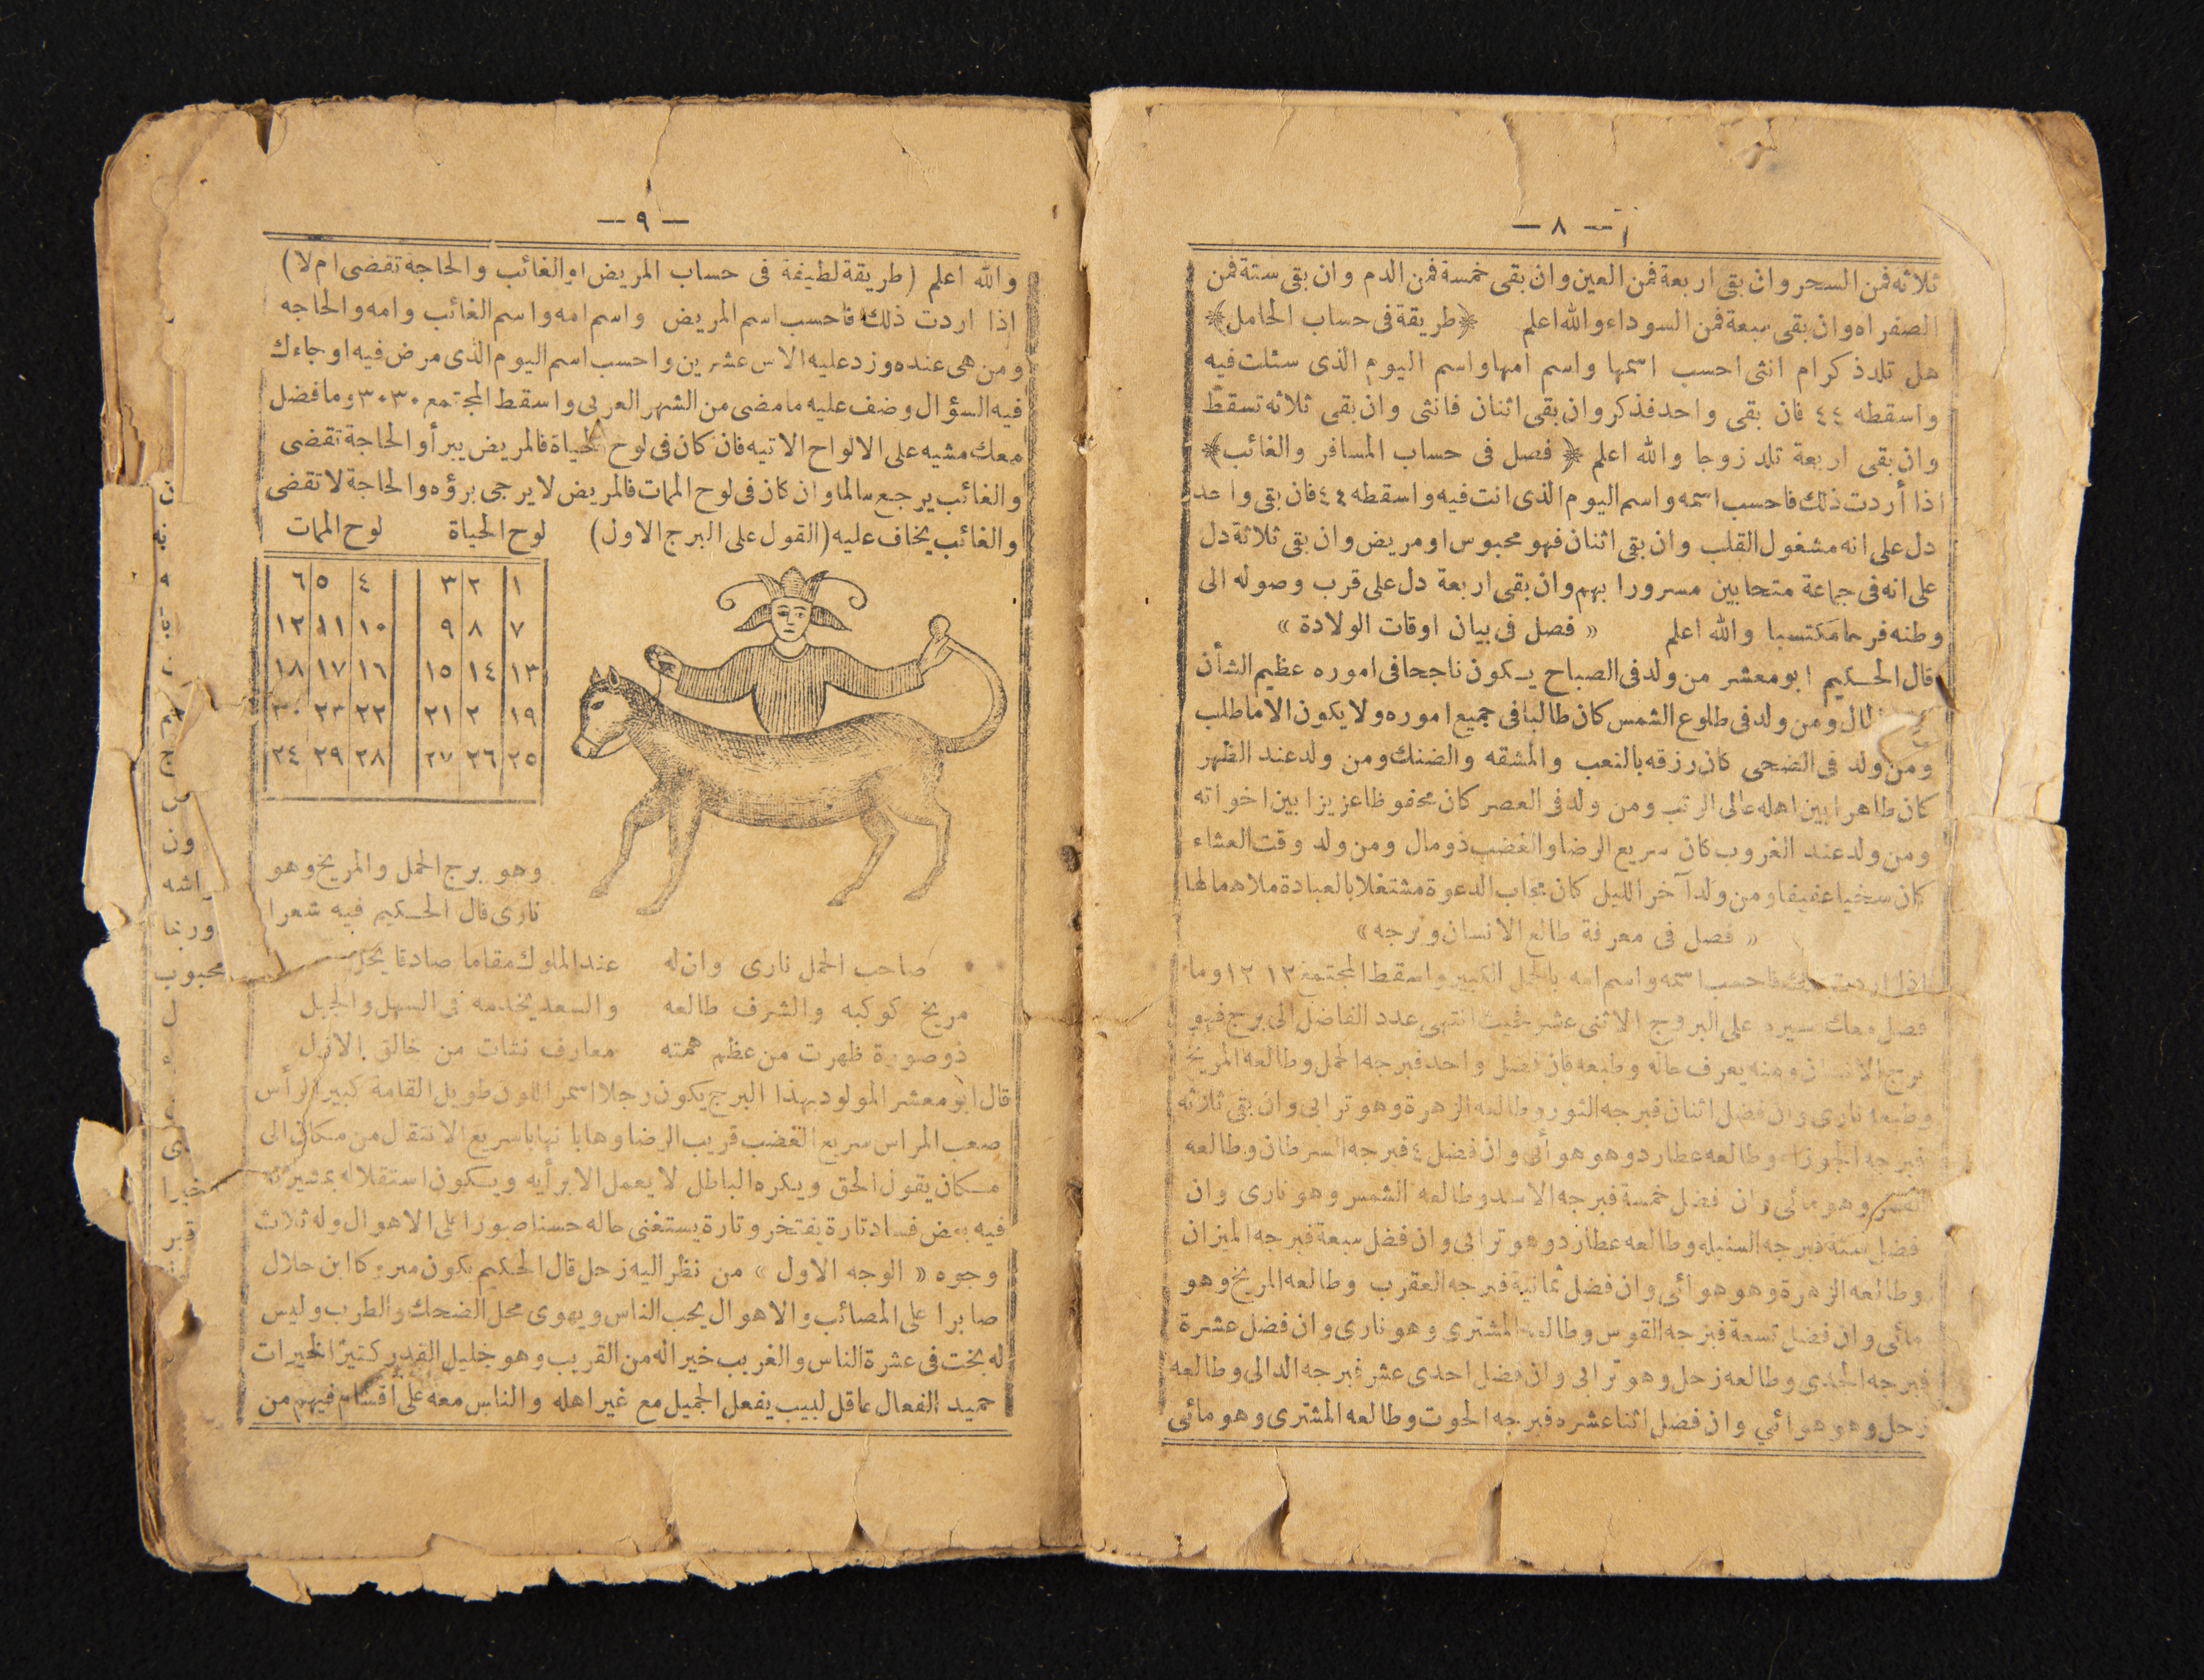 — ٨ —
ثلاثه فمن السحر وان بقى اربعة فمن العين وان بقى خمسة فمن الدم وان بقى ستة فمن
الصفراه وان بقى سبعة فمن السوداء والله اعلم ﴿طريقة فى حساب الحامل﴾
هل تلد ذكرام انثى احسب اسمها واسم امها واسم اليوم الذى سئلت فيه
واسقطه ٤٤ فان بقى واحد فذكر وان بقى اثنان فانثى وان بقى ثلاثه تسقط
وان بقى اربعة تلد زوجا والله اعلم ﴿فصل فى حساب المسافر والغائب﴾
اذا أردت ذلك فاحسب اسمه واسم اليوم الذى انت فيه واسقطه ٤٤ فان بقى واحد
دل على انه مشغول القلب وان بقى اثنان فهو محبوس او مريض وان بقى ثلاثة دل
على انه فى جماعة متحابين مسرورا بهم وان بقى اربعة دل على قرب وصوله الى
وطنه فرحا مكتسبا والله اعلم « فصل فى بيان اوقات الولادة »
قال الحكيم ابو معشر من ولد فى الصباح يكون ناجحا فى اموره عظيم الشأن
ومن ولد فى طلوع الشمس كان طالبا فى جميع اموره ولا يكون الا ماطلب
ومن ولد فى الضحى كان رزقه بالتعب والمشقه والضنك ومن ولد عند الظهر
كان طاهرا بين اهله عالى الرتب ومن ولد فى العصر كان محفوظا عزيزا بين اخواته
ومن ولد عند الغروب كان سريع الرضا والغضب ذو مال ومن ولد وقت العشاء
كان سخيا عفيفا ومن ولد آخر الليل كان مجاب الدعوة مشتغلا بالعبادة ملاهما لها
« فصل فى معرفة طالع الانسان وبرجه »
اذا اردت ذلك فاحسب اسمه واسم امه بالجمل الكبير واسقط المجتمع ١٢ ١٢ وما
فضل معك سيره على البروج الاثنى عشر فحيث انتهى عدد الفاضل الى برج فهو
برج الانسان ومنه يعرف حاله وطبعه فان فضل واحد فبرجه الحمل وطالعه المريخ
وطبعه نارى وان فضل اثنان فبرجه الثور وطالعه الزهرة وهو ترابى وان بقى ثلاثه
فبرجه الجوزاء وطالعه عطارد وهو هوائى وان فضل ٤ فبرجه السرطان وطالعه
القمر وهو مائى وان فضل خمسة فبرجه الاسد وطالعه الشمس وهو نارى وان
فضل ستة فبرجه السنبله وطالعه عطارد وهو ترابى وان فضل سبعة فبرجه الميزان
وطالعه الزهرة وهو هوائى وان فضل ثمانية فبرجه العقرب وطالعه المريخ وهو
مائى وان فضل تسعة فبرجه القوس وطالعه المشترى وهو نارى وان فضل عشرة
فبرجه الجدى وطالعه زحل وهو ترابى وان فضل احدى عشر فبرجه الدالى وطالعه
زحل وهو هوائي وان فضل اثنا عشره فبرجه الحوت وطالعه المشترى وهو مائى
— ٩ —
والله اعلم (طريقة لطيفة فى حساب المريض او الغائب والحاجة تقضى ام لا)
إذا اردت ذلك فاحسب اسم المريض واسم امه واسم الغائب وامه والحاجه
ومن هى عنده وزد عليه الاس عشرين واحسب اسم اليوم الذى مرض فيه او جاءك
فيه السؤال وضف عليه ما مضى من الشهر العربى واسقط المجتمع ٣٠ ٣٠ وما فضل
معك مشيه على الالواح الاتيه فان كان فى لوح الحياة فالمريض يبرأ والحاجة تقضى
والغائب يرجع سالما وان كان فى لوح الممات فالمريض لا يرجى برؤه والحاجة لا تقضى
والغائب يخاف عليه (القول على البرج الاول) لوح الحياة لوح الممات
١ ٢ ٣ ٤ ٥ ٦
٧ ٨ ٩ ١٠ ١١ ١٢
١٣ ١٤ ١٥ ١٦ ١٧ ١٨
١٩ ٢ ٢١ ٢٢ ٢٣ ٣٠
٢٥ ٢٦ ٢٧ ٢٨ ٢٩ ٢٤
وهو برج الحمل والمريخ وهو
نارى قال الحكيم فيه شعرا
صاحب الحمل نارى وان له عند الملوك مقاما صادقا
مريخ كوكبه والشرف طالعه والسعد يخدمه فى السهل والجبل
ذو صورة ظهرت من عظم همته معارف نشات من خالق الازل
قال ابو معشر المولود بهذا البرج يكون رجلا اسمر اللون طويل القامة كبير الرأس
صعب المراس سريع الغضب قريب الرضا وهابا نهابا سريع الانتقال من مكان الى
مكان يقول الحق ويكره الباطل لا يعمل الا برأيه ويكون استقلاله
فيه بعض فساد تارة يفتخر وتارة يستغنى حاله حسنا صبورا على الاهوال وله ثلاث
وجوه « الوجه الاول » من نظر اليه زحل قال الحكيم يكون ابن حلال
صابرا على المصائب والاهوال يحب الناس ويهوى محل الضحك والطرب وليس
له بخت فى عشرة الناس والغريب خير اله من القريب وهو جليل القدر كثير الخيرات
حميد الفعال عاقل لبيب يفعل الجميل مع غير اهله والناس معه على اقسام فيهم من
ون
محبوب
ل
ء
خيرا